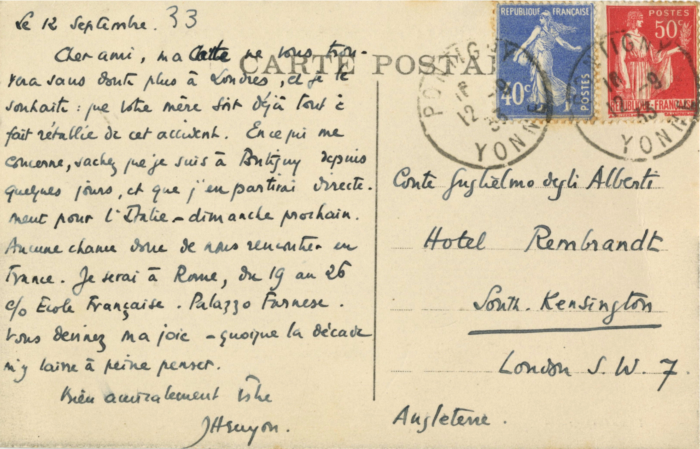 Le 12 Septembre. 33
Cher ami, ma lettre ne vous trou-
vera sans doute plus à Londres, et je le
souhaite : que votre mère soit déjà tout à
fait rétablie de cet accident. En ce qui me
concerne, sachez que je suis à Pontigny depuis
quelques jours, et que j'en partirai directe-
ment pour l'Italie - dimanche prochain.
Aucune chance donc de nous rencontrer en
France. Je serai à Rome, du 19 au 26
c/o Ecole Française. Palazzo Farnese.
Vous devinez ma joie - quoique la décade
m'y laisse à peine penser.
Bien amicalement vôtre
CARTE POSTAL
REPUBLIQUE FRANÇAISE
40c
POSTES
POSTES
50c
REPUBLIQUE FRANÇAISE
PONTIGNY
12 -9
33
YONNE
TIGNY
12 -9
33
YONNE
Conte Guglielmo degli Alberti
Hotel Rembrandt
South. Kensington
London S. W. 7.
Angleterre.